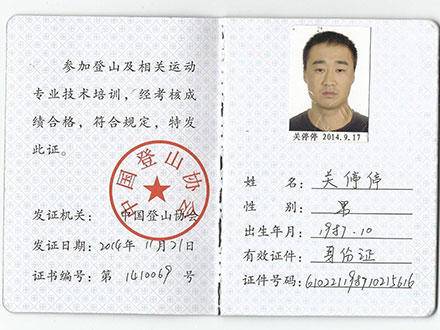 参加登山及相关运动
专业技术培训，经考核成
绩合格，符合规定，特发
此证。
中国登山协会
发证机关： 中国登山协会
发证日期：2014年11月21日
证书编号：第 1410069 号
关停停 2014.9.17
姓 名：关停停
性 别：男
出生年月：1987.10
有效证件：身份证
证件号码：610221198710215616